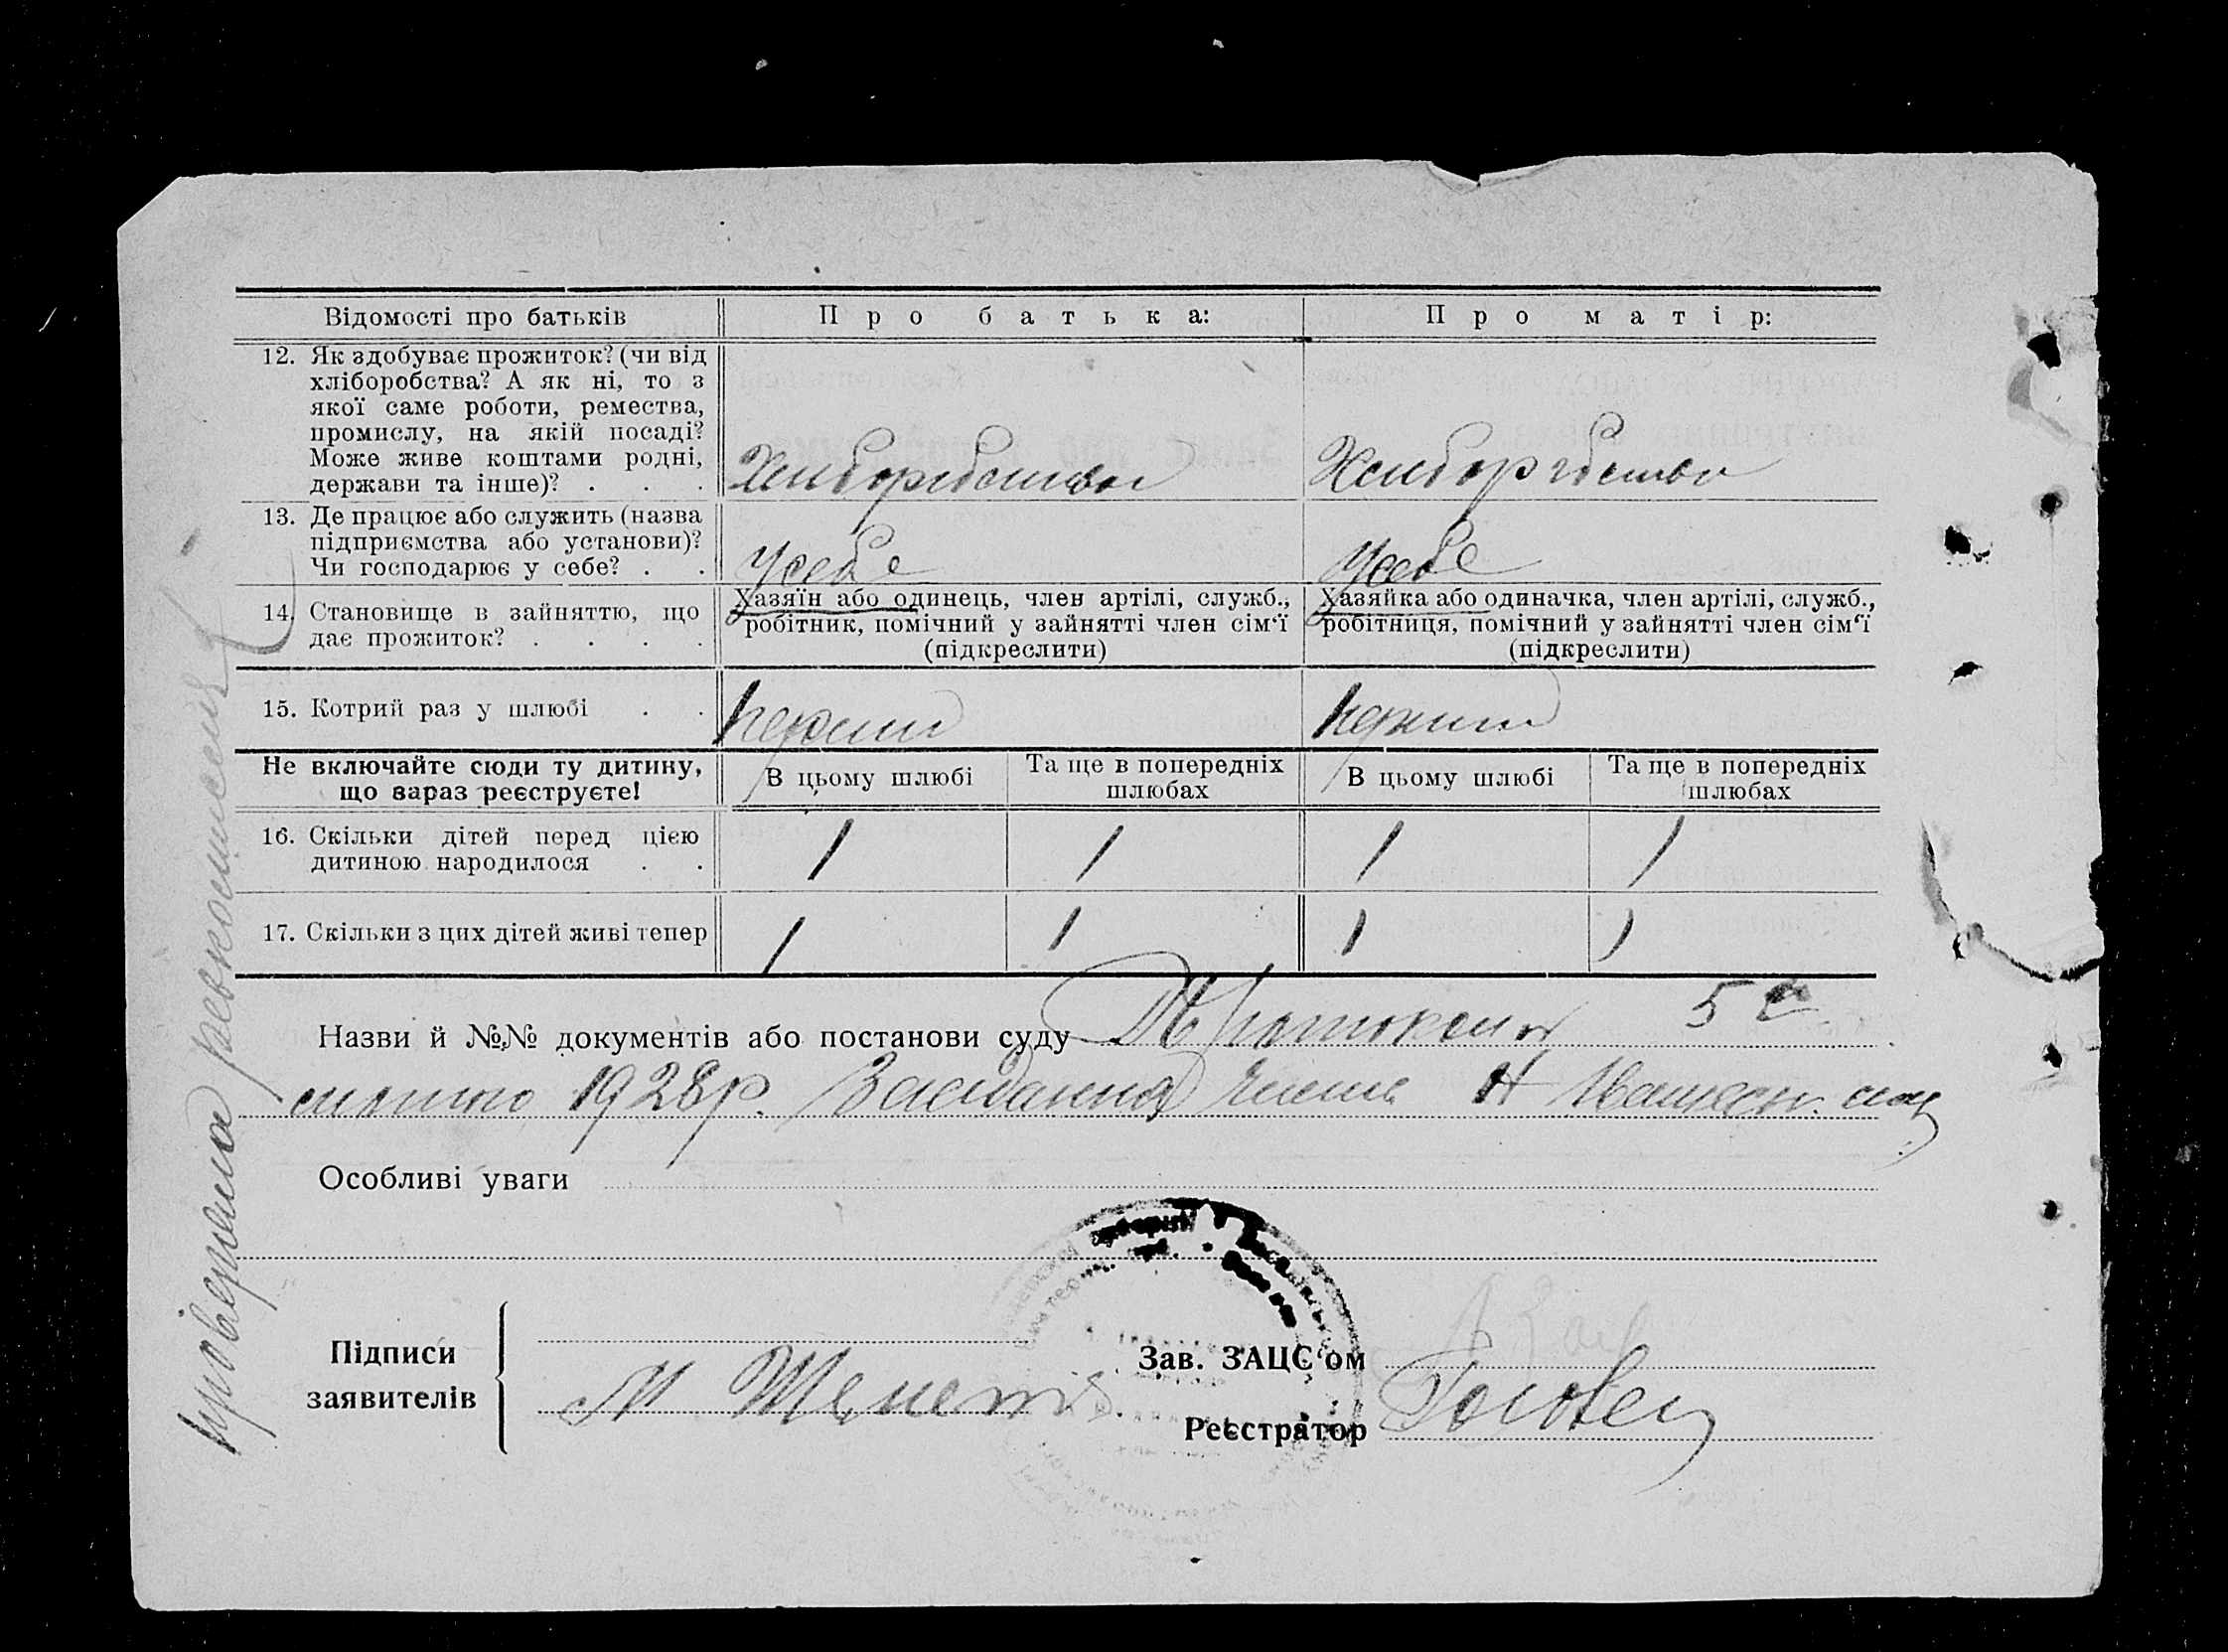 Відомості про батьків
Про батька:
Про матір:
12. Як здобуває прожиток? (чи від
хліборобства? А як ні, то з
якої саме роботи, ремества,
промислу, на якій посаді?
Може живе коштами родні,
держави та інше)? . . .
Хліборобство
Хліборобство
13. Де працює або служить (назва
підприємства або установи)?
Чи господарює у себе? . .
У себе
У себе
14. Становище в зайняттю, що
дає прожиток? . . . .
Хазяїн або одинець, член артілі, служб.,
робітник, помічний у зайнятті член сім'ї
(підкреслити)
Хазяйка або одиначка, член артілі, служб.,
робітниця, помічний у зайнятті член сім'ї
(підкреслити)
15. Котрий раз у шлюбі . .
перший
перший
Не включайте сюди ту дитину,
що зараз реєструєте!
В цьому шлюбі
Та ще в попередніх
шлюбах
В цьому шлюбі
Та ще в попередніх
шлюбах
16. Скільки дітей перед цією
дитиною народилося . .
/ / / /
17. Скільки з цих дітей живі тепер
/ / / /
Назви й №№ документів або постанови суду Протокол 5
лютого 1928р. Засідання
Особливі уваги
Підписи
заявителів
М
Зав. ЗАЦС'ом
Реєстратор
провірено